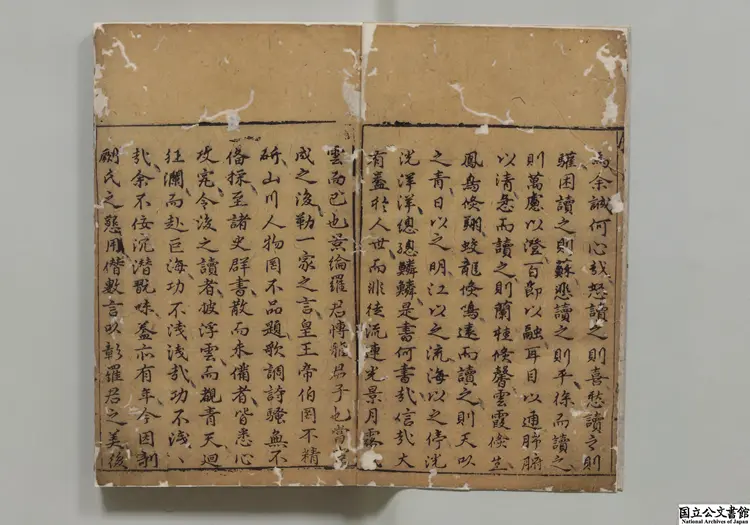 為余誠何心哉怒讀之則喜愁讀之則
驩困讀之則蘇悲讀之則平徐而讀之
則萬慮以澄百節以融耳目以通肺腑
以清急而讀之則蘭桂倐馨雲霞倐生
鳳鳥倐翔蛟龍倐鳴遠而讀之則天以
之青日以之明江以之流海以之停洸
洸洋洋總總鱗鱗是書何書哉信哉大
有益扵人世而非徒流連光景月露
雲而已也景綸羅君博雅君子也當
成之後勒一家之言皇王帝伯罔不精
硏山川人物罔不品題歌調詩騷無不
備採至諸史群書散而未備者皆悉心
攻究令後之讀者披浮雲而覩青天迴
狂瀾而赴巨海功不淺淺哉功不淺〻
哉余不佞沉潛翫味葢亦有年今因剞
劂氏之懇用僭數言以彰羅君之美後
国立公文書館
National Archives of Japan